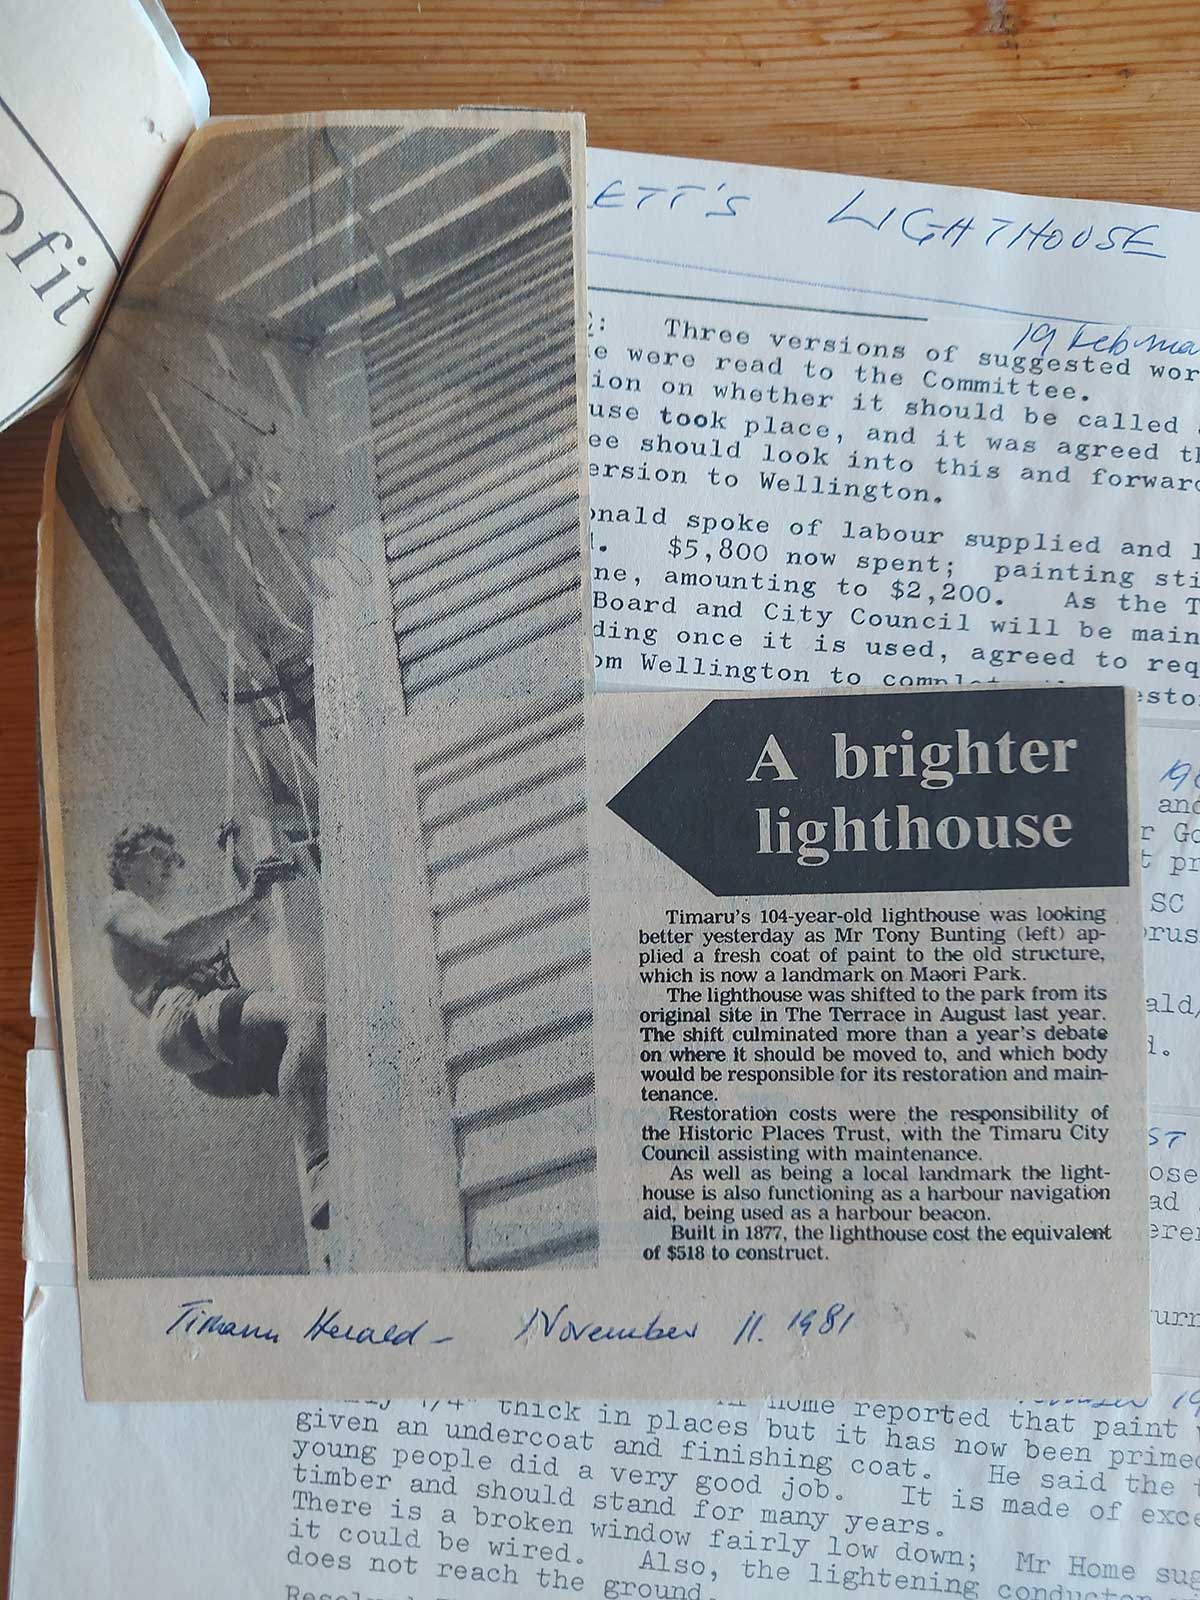 ofit
ETT'S LIGHTHOUSE
19
: Three versions of suggested wor
e were read to the Committee.
ion on whether it should be called
use took place, and it was agreed th
ee should look into this and forward
ersion to Wellington.
onald spoke of labour supplied and
. $5,800 now spent; painting sti
ne, amounting to $2,200. As the T
Board and City Council will be main
ding once it is used, agreed to req
om Wellington to
esto
A brighter
lighthouse
Timaru's 104-year-old lighthouse was looking
better yesterday as Mr Tony Bunting (left) ap-
plied a fresh coat of paint to the old structure,
which is now a landmark on Maori Park.
The lighthouse was shifted to the park from its
original site in The Terrace in August last year.
The shift culminated more than a year's debate
on where it should be moved to, and which body
would be responsible for its restoration and main-
tenance.
Restoration costs were the responsibility of
the Historic Places Trust, with the Timaru City
Council assisting with maintenance.
As well as being a local landmark the light-
house is also functioning as a harbour navigation
aid, being used as a harbour beacon.
Built in 1877, the lighthouse cost the equivalent
of $518 to construct.
Timaru Herald - November 11. 1981
19
and
r Go
t pr
SC
rus
ald/
d.
ST
ose
ad
ere
urn
19
1/4" thick in places but it has now been primed
Home reported that paint
given an undercoat and finishing coat. He said the
young people did a very good job. It is made of exce
timber and should stand for many years.
There is a broken window fairly low down; Mr Home sug
it could be wired. Also, the lightening conductor
does not reach the ground.